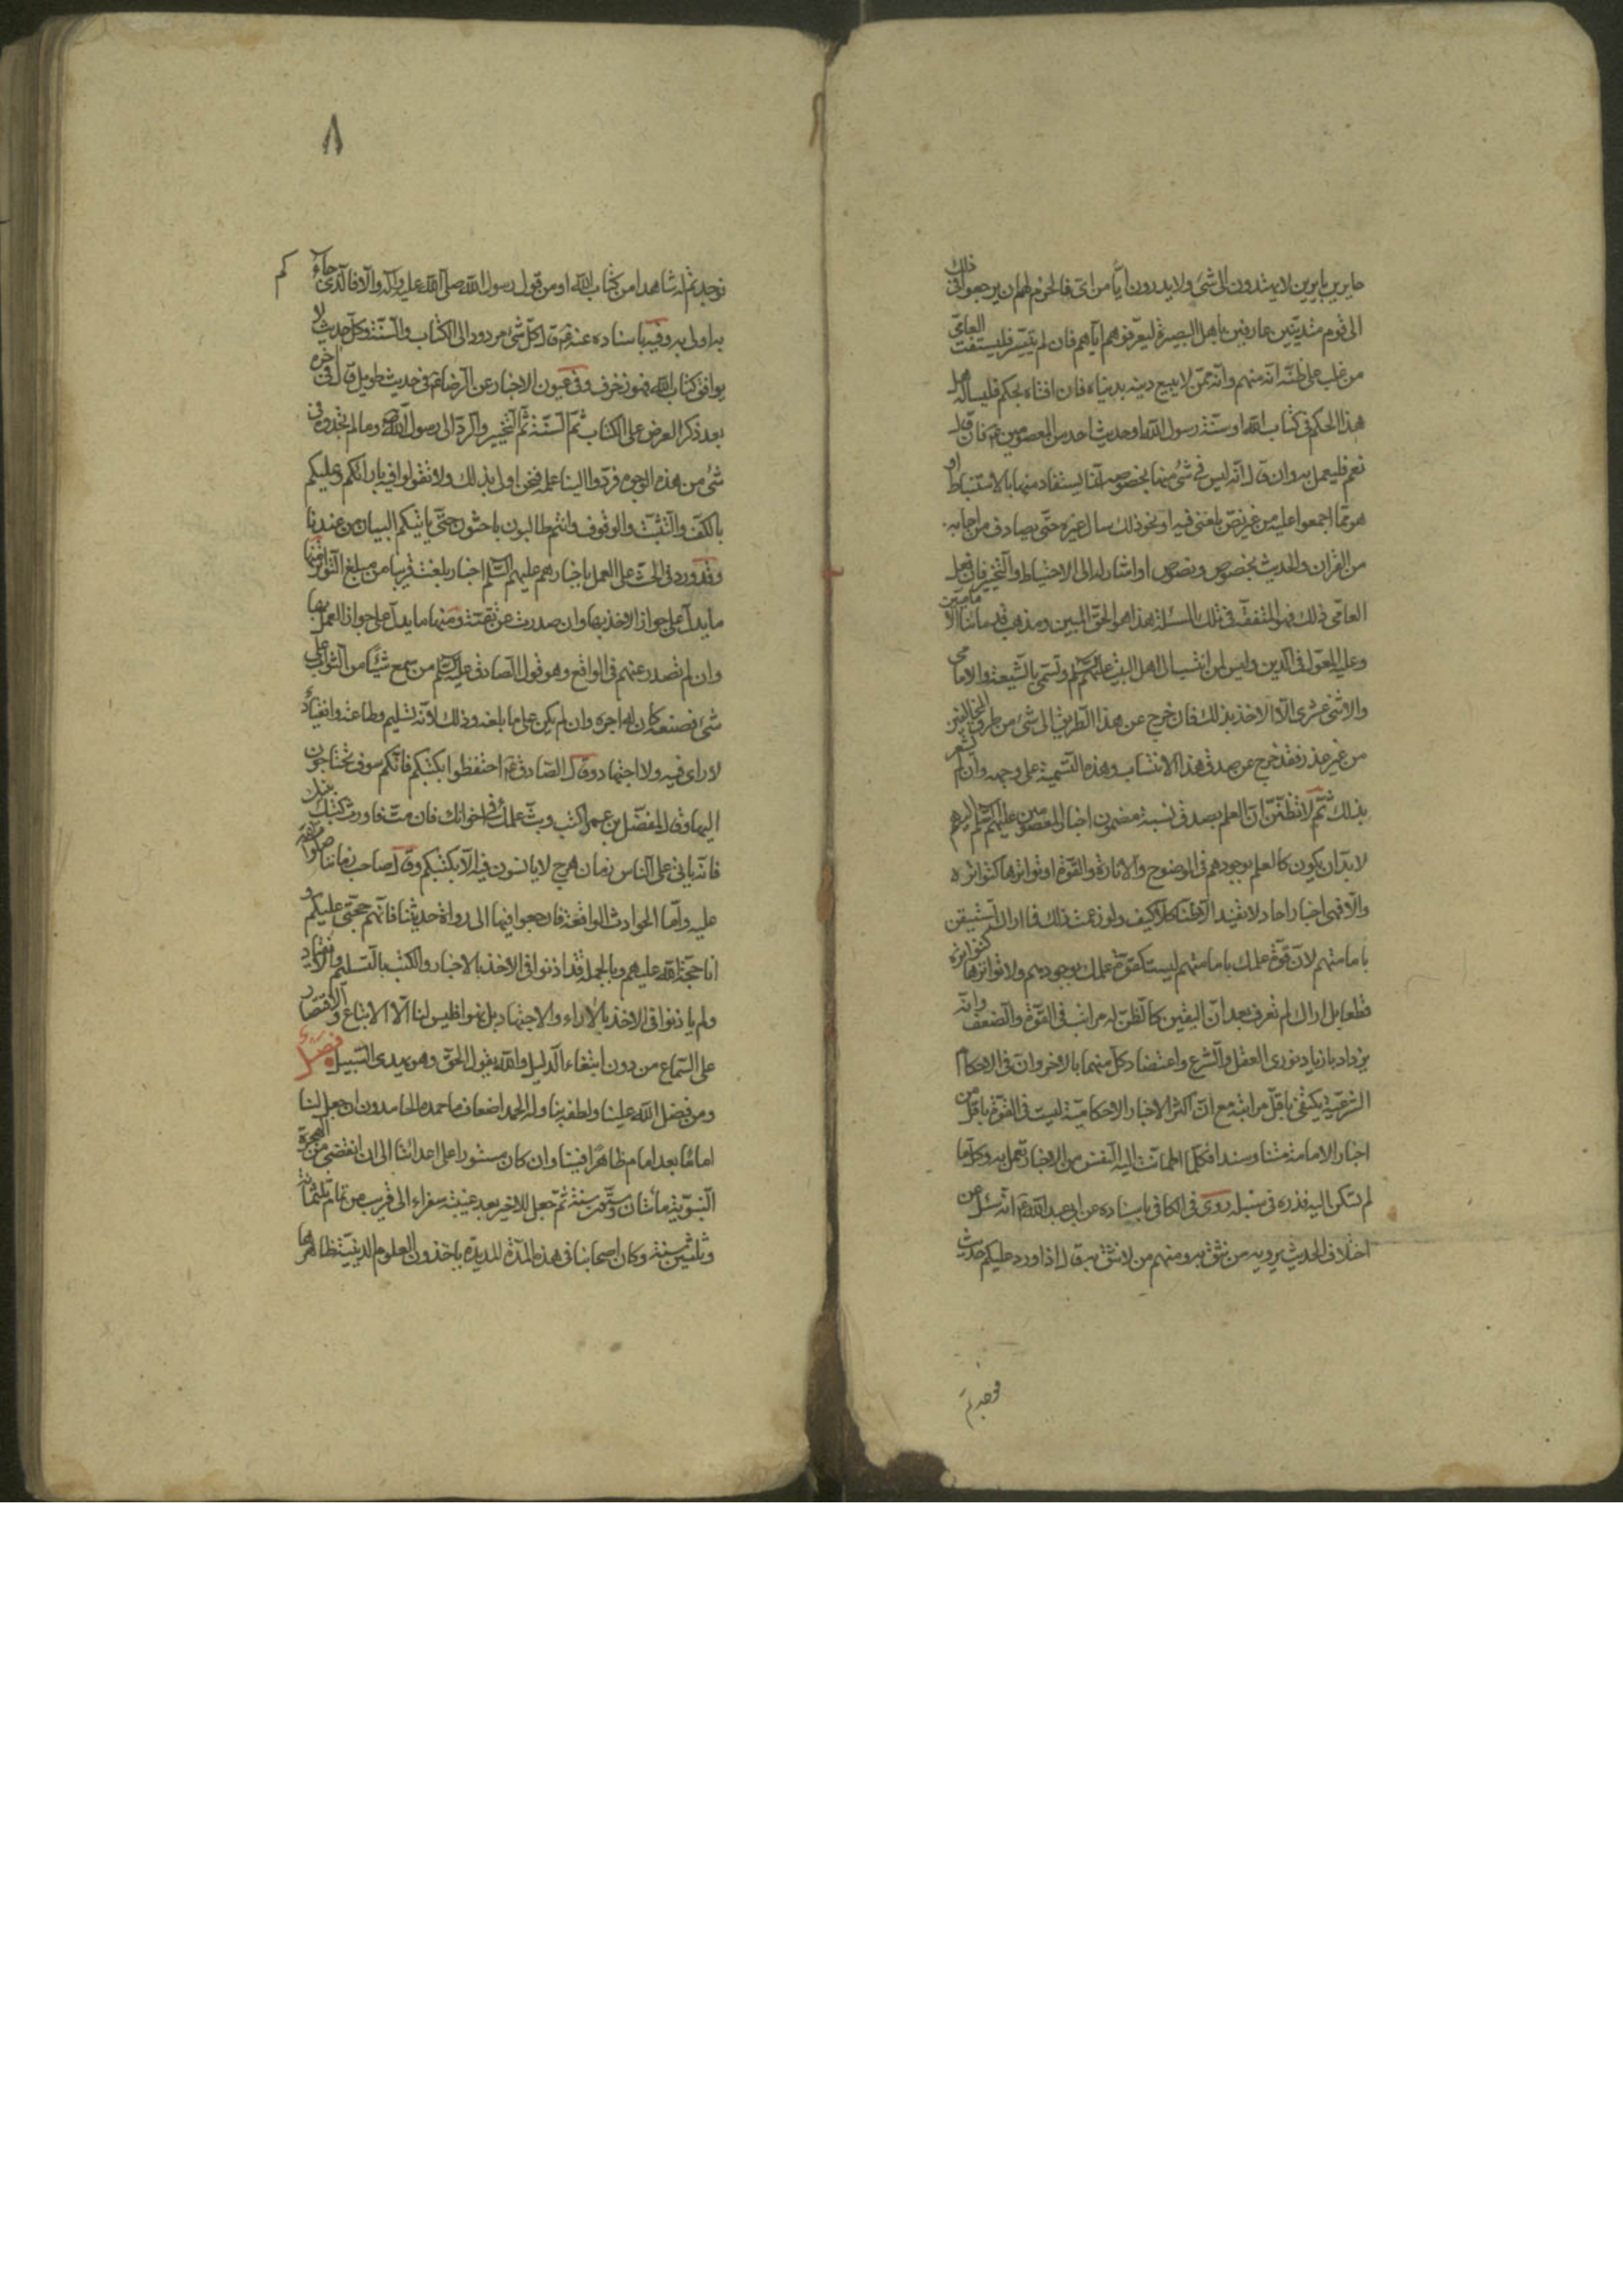 حايرين بايرين لا يهتدون الى شئ ولا يدرون ايّا من اىّ فالحزم لهم ان يرجعوا فى ذلك
الى قوم متديّنين عارفين باهل البصيرة ليعرّفوهم اياهم فان لم يتيسّر فليستفت العامّى
من غلب على ظنّه انّه منهم وانّه ممّن لا يبيع دينه بدنياه فان افتاه بحكم فليساله هل
هذا الحكم فى كتاب الله او سنّة رسول الله او حديث احد من المعصومين عم فان قال
نعم فليعمل به وان قال انّه ليس فى شئ منها بخصوصه انّما يستفاد منها بالاستنباط او
هو ممّا اجمعوا عليه من غير نصّ بلغنى فيه او نحو ذلك سال غيره حتى يصادف من اجابه
من القران والحديث بخصوص ونصوص او اشار له الى الاحتياط والتخيير فان فعل
العامّى ذلك فهو المتفقّه فى تلك المسئلة هذا هو الحقّ المبين ومذهب قدمائنا الاماميين
وعليه المعوّل فى الدين وليس لمن انتسب الى اهل البيت عليهم السلم وتسمّى بالشيعة والامامى
والاثنى عشرى الّا الاخذ بذلك فان خرج عن هذا الطريق الى شئ من طرق المخالفين
من غير عذر فقد خرج عن صدق هذا الانتساب وهذه التسمية على وجهه وان لم يشعر
بذلك ثم لا تظنّنّ انّ العلم بصدق نسبة مضمون اخبار المعصومين عليهم السلم اليهم
لا بدّ ان يكون كالعلم بوجودهم فى الوضوح والانارة والقوّة او تواترها كتواتره
والّا فهى اخبار احاد لا تفيد الّا ظنّا كلّا كيف ولو زعمت ذلك فما اراك تستيقن
بامامتهم لانّ قوّة علمك بامامتهم ليست كقوّة علمك بوجودهم ولا تواترها كتواتره
قطعا بل اراك لم تعرف بعد انّ اليقين كالظنّ له مراتب فى القوّة والضعف وانّه
يزداد بازدياد نورى العقل والشرع واعتضاد كلّ منهما بالاخر وانّ فى الاحكام
الشرعيّة يكتفى باقلّ مراتبه مع انّ اكثر الاخبار الاحكاميّة ليست فى القوّة باقلّ من
اخبار الامامة متنا وسندا فكلّما اطمانّت اليه النفس من الاخبار تعمل به وكلّما
لم تسكن اليه فذره فى سنبله روى فى الكافى باسناده عن ابى عبد الله عم انّه سئل عن
اختلاف الحديث يرويه من نثق به ومنهم من لا نثق به قال اذا ورد عليكم حديث
فوجدتم
٨
فوجدتم له شاهدا من كتاب الله او من قول رسول الله صلى الله عليه واله والّا فالّذى جاءكم
به اولى به وفيه باسناده عنه عم قال كلّ شئ مردود الى الكتاب والسنّة وكلّ حديث لا
يوافق كتاب الله فهو زخرف وفى عيون الاخبار عن الرضا عم فى حديث طويل قال فى اخره
بعد ذكر العرض على الكتاب ثم السنّة ثم التخيير والردّ الى رسول الله ص وما لم تجدوه فى
شئ من هذه الوجوه فردّوا الينا علمه فنحن اولى بذلك ولا تقولوا فيه بارائكم وعليكم
بالكفّ والتثبّت والوقوف وانتم طالبون باحثون حتى ياتيكم البيان من عندنا
وقد ورد فى الحثّ على العمل باخبارهم عليهم السلم اخبار بلغت قريبا من مبلغ التواتر منها
ما يدلّ على جواز الاخذ بها وان صدرت عن تقيّة ومنها ما يدلّ على جواز العمل بها
وان لم تصدر عنهم فى الواقع وهو قول الصادق عليه السلم من سمع شيئا من الثواب على
شئ فصنعه كان له اجره وان لم يكن على ما بلغه وذلك لانّه تسليم وطاعة وانقياد
لا راى فيه ولا اجتهاد وقال الصادق عم احتفظوا بكتبكم فانّكم سوف تحتاجون
اليها وقال للمفضّل بن عمر اكتب وبثّ علمك فى اخوانك فان متّ فاورث كتبك بنيك
فانّه ياتى على الناس زمان هرج لا يانسون فيه الّا بكتبكم وقال صاحب زماننا صلوات الله
عليه وامّا الحوادث الواقعة فارجعوا فيها الى رواة حديثنا فانّهم حجّتى عليكم و
انا حجّة الله عليهم وبالجملة قد اذنوا فى الاخذ بالاخبار والكتب بالتسليم والانقياد
ولم ياذنوا فى الاخذ بالاراء والاجتهاد بل نهوا فليس لنا الّا الاتباع والاقتصار
على السماع من دون ابتغاء الدليل والله يقول الحقّ وهو يهدى السبيل فصل
ومن فضل الله علينا ولطفه بنا وله الحمد اضعاف ما حمده الحامدون ان جعل لنا
اماما بعد امام ظاهرا فينا وان كان مستورا على اعدائنا الى ان انقضى من الهجرة
النبويّة مائتان وستّون سنة ثمّ جعل للاخير بعد غيبته سفراء الى قريب من تمام ثلثمائة
وثلثين سنة وكان اصحابنا فى هذه المدّة المديدة ياخذون العلوم الدينيّة ظاهرها